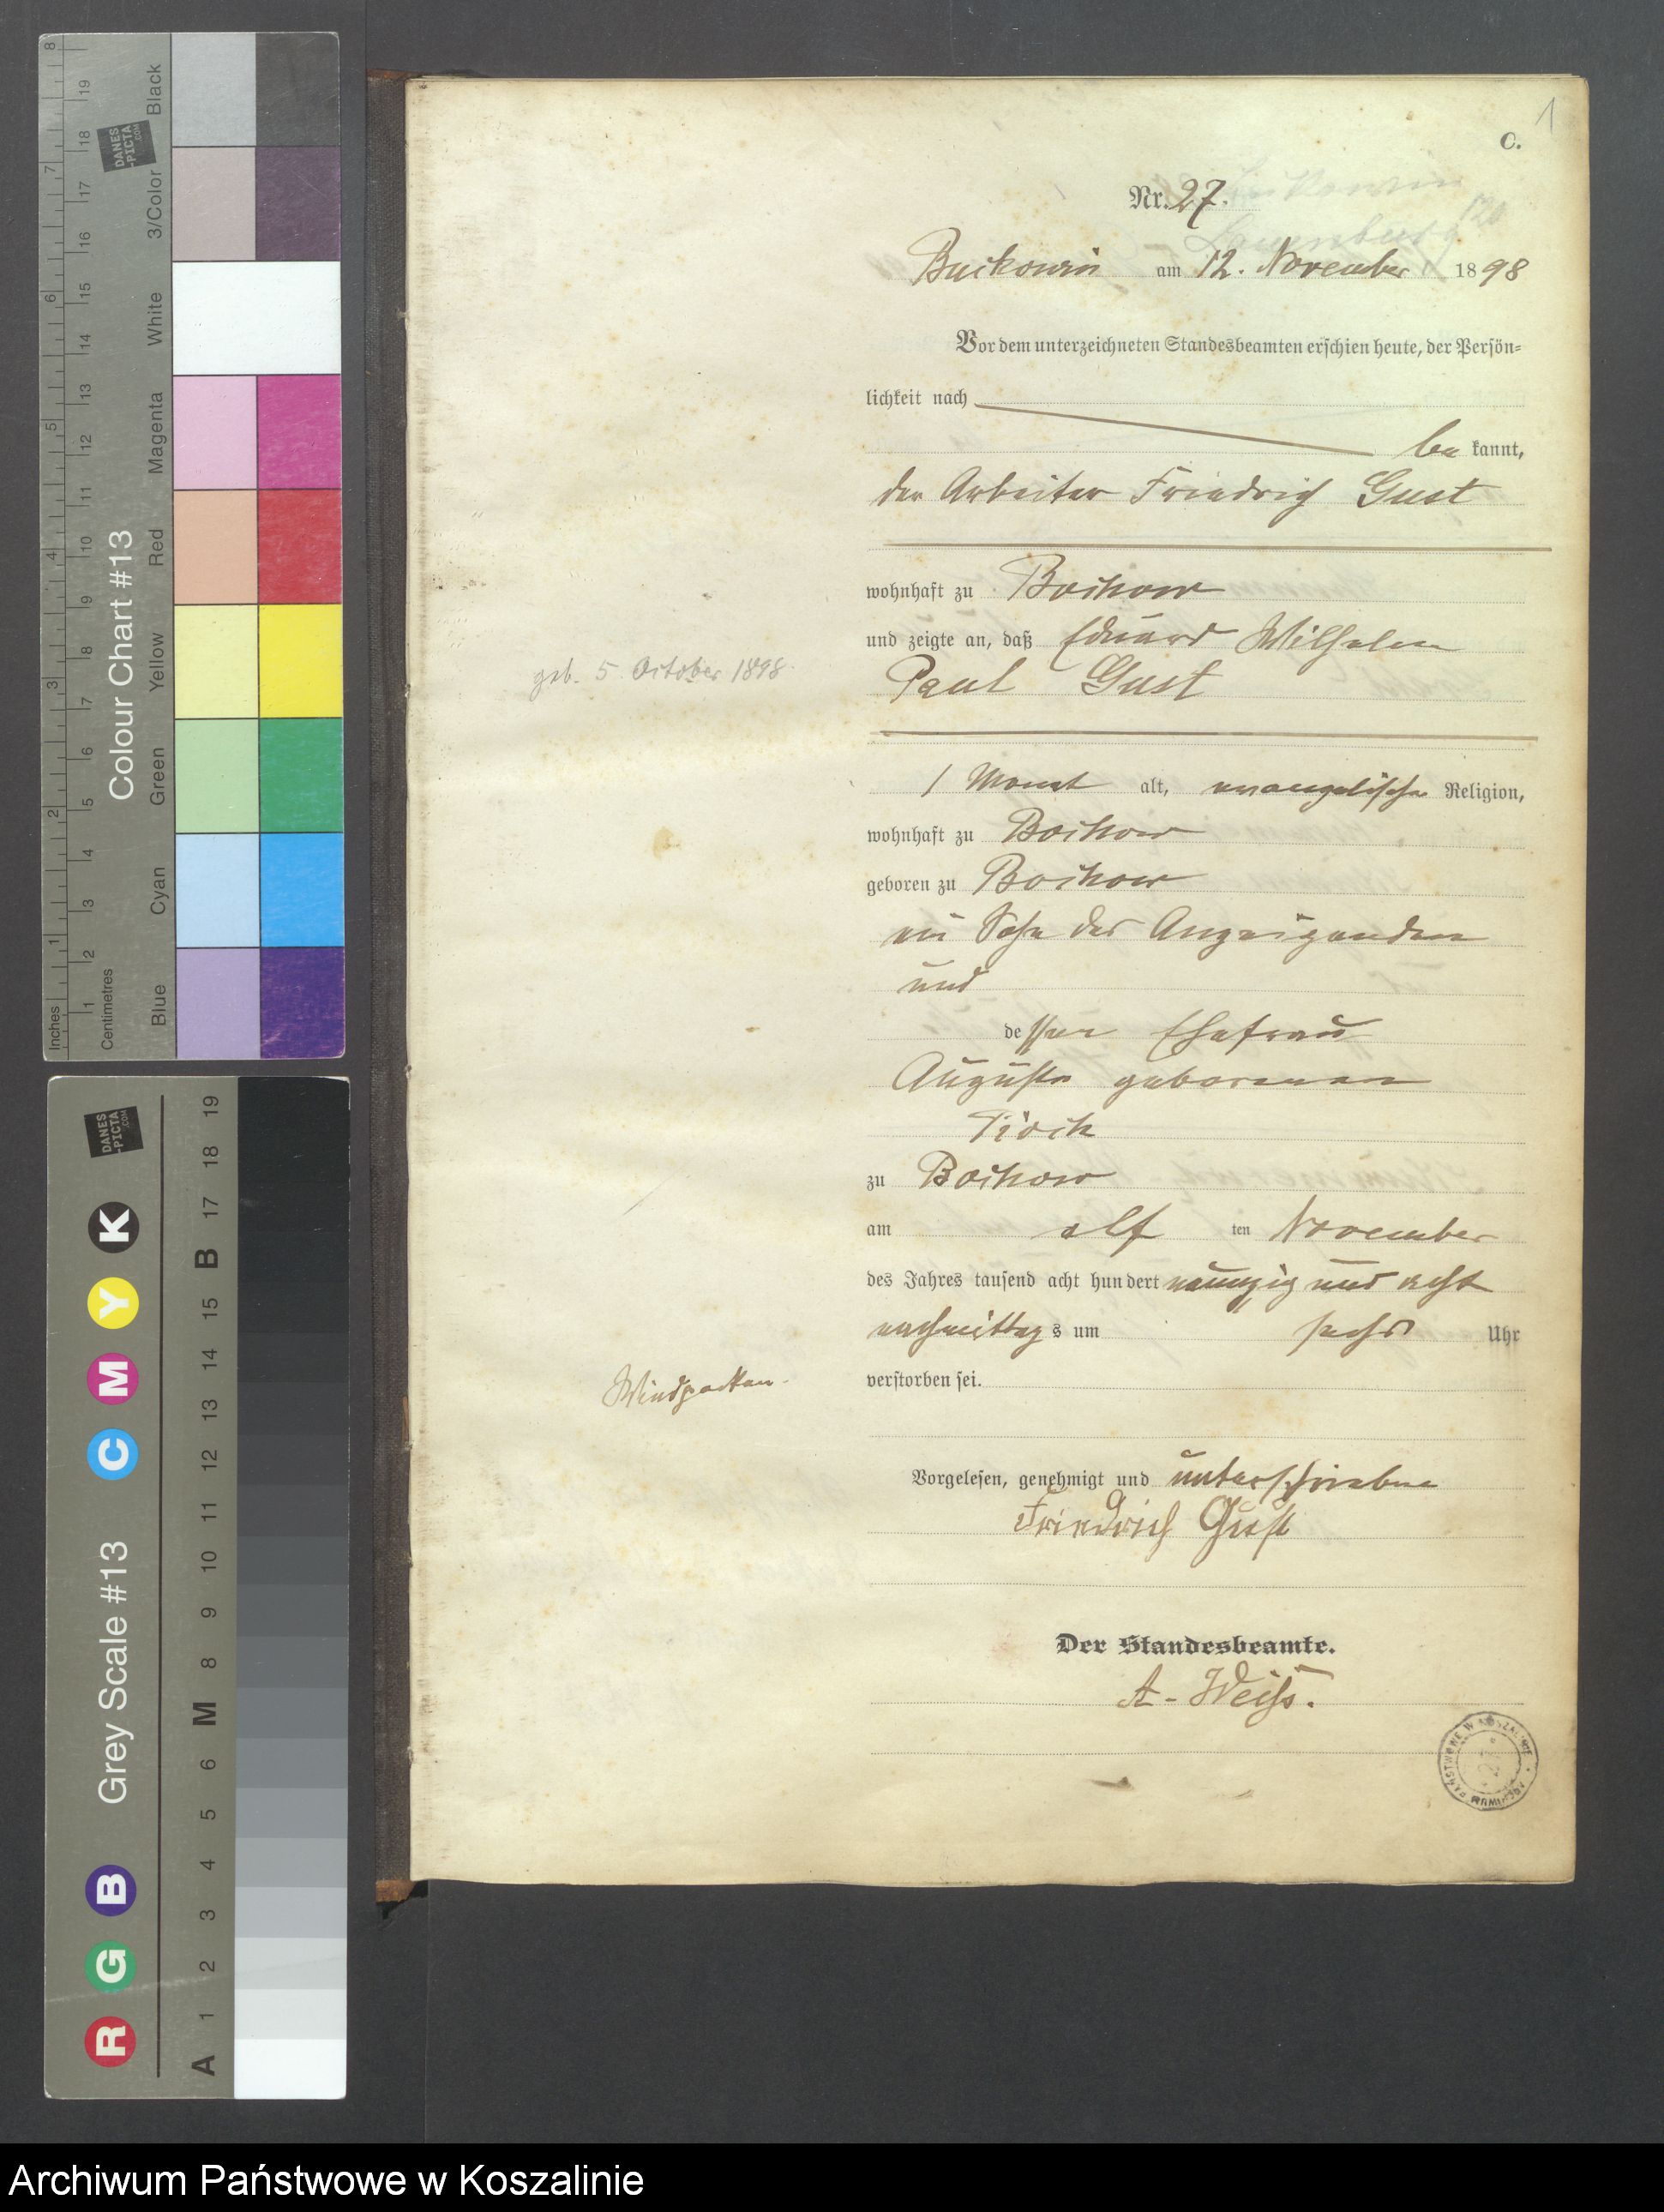 C.
1
Nr. 27.
Buckowin am 12. November 1898
Vor dem unterzeichneten Standesbeamten erschien heute, der Persön-
lichkeit nach
be kannt,
der Arbeiter Friedrich Gust
wohnhaft zu Bochow
und zeigte an, daß Eduard Wilhelm
Paul Gust
geb. 5. October 1898.
1 Monat alt, evangelischer Religion,
wohnhaft zu Bochow
geboren zu Bochow
ein Sohn des Anzeigenden
und
dessen Ehefrau
Auguste geborenen
Pioch
zu Bochow
am elf ten November
des Jahres tausend acht hundert neunzig und acht
nachmittags um sechs Uhr
verstorben sei.
Windpocken.
Vorgelesen, genehmigt und unterschrieben
Friedrich Gust
Der Standesbeamte.
A. Weiß.
Colour Chart #13
Blue Cyan Green Yellow Red Magenta White 3/Color Black
Inches 1 2 3 4 5 6 7 8
Centimetres 1 2 3 4 5 6 7 8 9 10 11 12 13 14 15 16 17 18 19
DANES
-PICTA
.COM
Grey Scale #13
R G B C M Y K
A 1 2 3 4 5 6 M 8 9 10 11 12 13 14 15 B 17 18 19
DANES
-PICTA
.COM
Archiwum Państwowe w Koszalinie